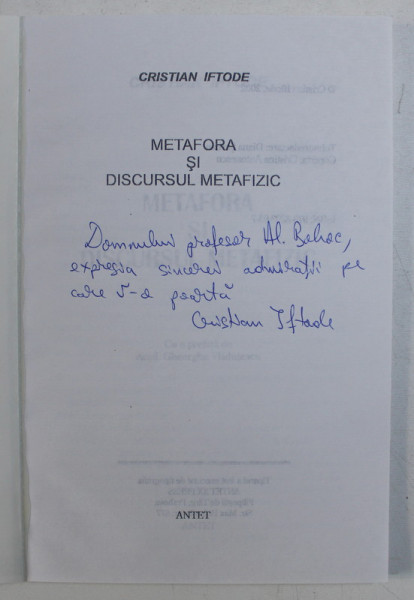 CRISTIAN IFTODE
METAFORA
ŞI
DISCURSUL METAFIZIC
Domnului profesor Al. Boboc,
expresia sincerei admiraţii pe
care i-o poartă
Cristian Iftode
ANTET